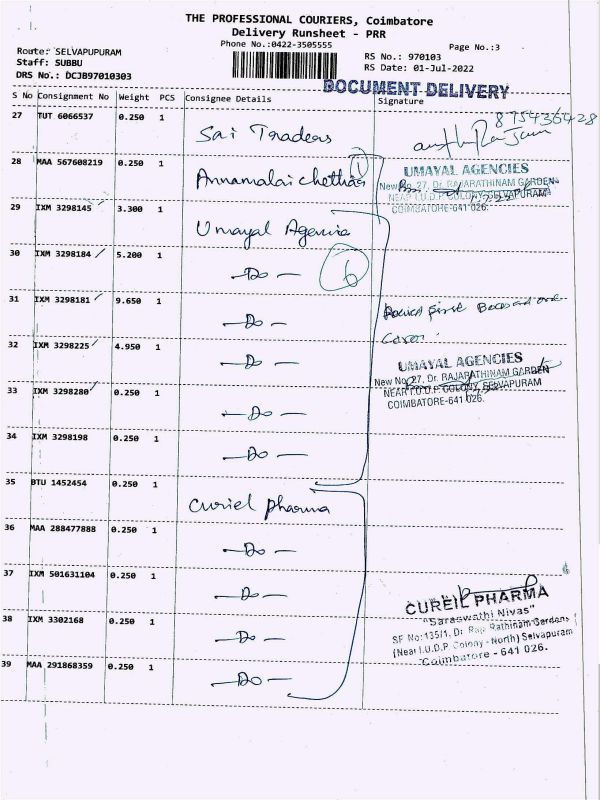 THE PROFESSIONAL COURIERS, Coimbatore
Delivery Runsheet - PRR
Phone No.:0422-3505555
Page No.:3
Route: SELVAPUPURAM
Staff: SUBBU
DRS No.: DCJB97010303
RS No.: 970103
RS Date: 01-Jul-2022
DOCUMENT DELIVERY
S No Consignment No Weight PCS Consignee Details Signature
27 TUT 6066537 0.250 1 Sai Traders
875436428
28 MAA 567608219 0.250 1 Annamalai chettiar 1
UMAYAL AGENCIES
New No. 27, Dr. RAJARATHINAM GARDEN
NEAR I.U.D.P. COLONY, SELVAPURAM
COIMBATORE-641 026.
29 IXM 3298145 3.300 1 Umayal Agencie
30 IXM 3298184 5.200 1 -Do- 6
31 IXM 3298181 9.650 1 -Do-
32 IXM 3298225 4.950 1 -Do-
UMAYAL AGENCIES
New No. 27, Dr. RAJARATHINAM GARDEN
NEAR I.U.D.P. COLONY, SELVAPURAM
COIMBATORE-641 026.
33 IXM 3298280 0.250 1 -Do-
34 IXM 3298198 0.250 1 -Do-
35 BTU 1452454 0.250 1 Curiel pharma
36 MAA 288477888 0.250 1 -Do-
37 IXM 501631104 0.250 1 -Do-
38 IXM 3302168 0.250 1 -Do-
39 MAA 291868359 0.250 1 -Do-
CUREIL PHARMA
"Saraswathi Nivas"
SF No:135/1, Dr. Raja Rathinam Gardens
(Near I.U.D.P. Colony - North) Selvapuram
Coimbatore - 641 026.